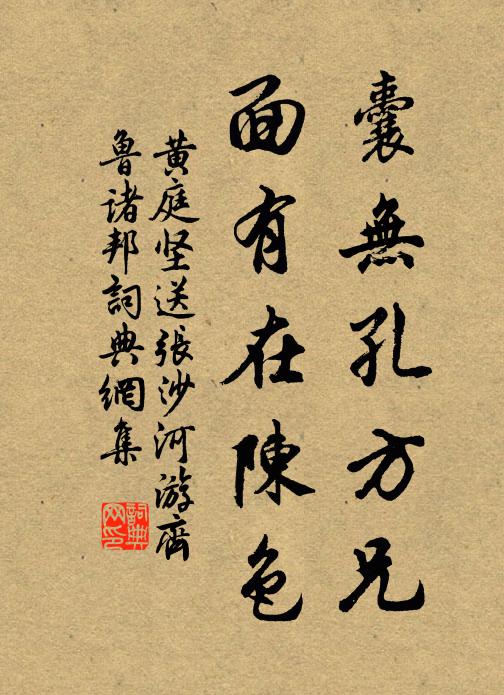 囊無孔方兄
面有在陳色
黄庭坚送張沙河游齊
魯诸邦詞典網集
詞典網印